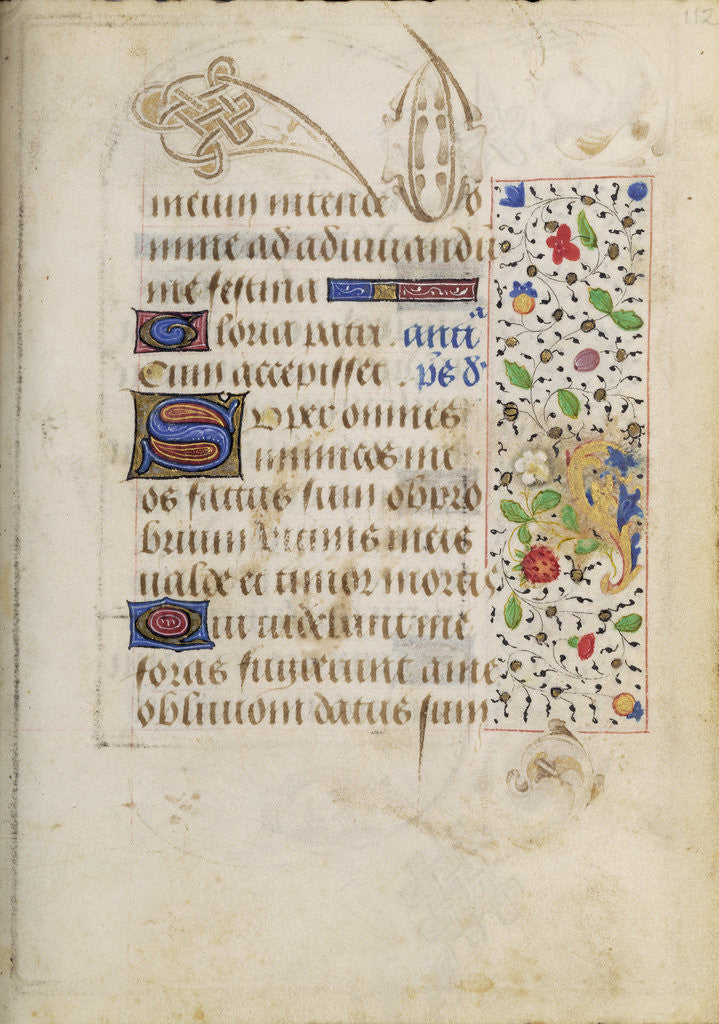 112
meum intende Do
mine ad adiuuandū
me festina
Gloria patri. antia
Cum accepisset. ps d
Super omnes
inimicos me
os factus sum obpro
brium vicinis meis
ualde et timor mortis
Qui uidebant me
foras fugierunt a me
obliuioni datus sum